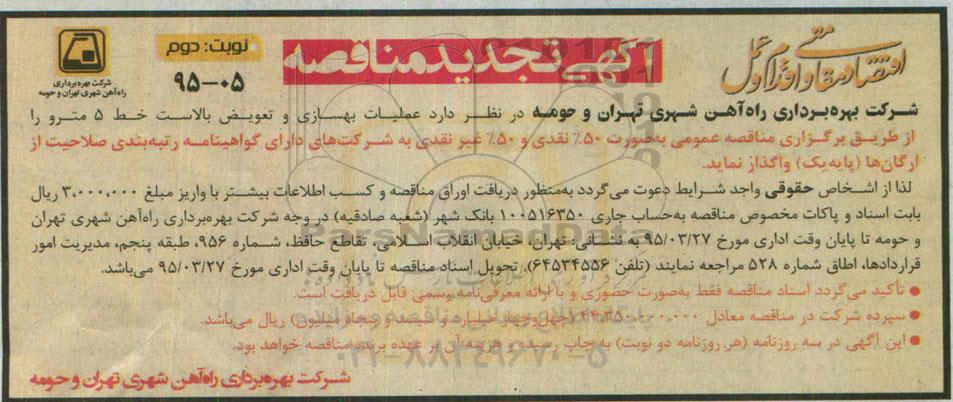 اقتصاد مقاومتی، اقدام و عمل
آگهی تجدید مناقصه
نوبت: دوم
۹۵-۰۰۵
شرکت بهره‌برداری
راه‌آهن شهری تهران و حومه
شرکت بهره‌برداری راه‌آهن شهری تهران و حومه در نظر دارد عملیات بهسازی و تعویض بالاست خط ۵ مترو را
از طریق برگزاری مناقصه عمومی به‌صورت ۵۰٪ نقدی و ۵۰٪ غیر نقدی به شرکت‌های دارای گواهینامه رتبه‌بندی صلاحیت از
ارگان‌ها (پایه‌یک) واگذار نماید.
لذا از اشخاص حقوقی واجد شرایط دعوت می‌گردد به‌منظور دریافت اوراق مناقصه و کسب اطلاعات بیشتر با واریز مبلغ ۳,۰۰۰,۰۰۰ ریال
بابت اسناد و پاکات مخصوص مناقصه به‌حساب جاری ۱۰۰۵۱۶۳۵۰ بانک شهر (شعبه صادقیه) در وجه شرکت بهره‌برداری راه‌آهن شهری تهران
و حومه تا پایان وقت اداری مورخ ۹۵/۰۳/۲۷ به نشانی: تهران، خیابان انقلاب اسلامی، تقاطع حافظ، شماره ۹۵۶، طبقه پنجم، مدیریت امور
قراردادها، اطاق شماره ۵۲۸ مراجعه نمایند (تلفن ۶۴۵۳۴۵۵۶). تحویل اسناد مناقصه تا پایان وقت اداری مورخ ۹۵/۰۳/۲۷ می‌باشد.
• تأکید می‌گردد اسناد مناقصه فقط به‌صورت حضوری و با ارائه معرفی‌نامه رسمی قابل دریافت است.
• سپرده شرکت در مناقصه معادل (چهل‌وچهار میلیارد و سیصد و پنجاه میلیون) ریال می‌باشد.
• این آگهی در سه روزنامه (هر روزنامه دو نوبت) به‌چاپ رسیده و هزینه آن بر عهده برنده مناقصه خواهد بود.
۰۲۱-۸۸۳۴۹۶۷۰-۵
شرکت بهره‌برداری راه‌آهن شهری تهران و حومه
ParsNamadData